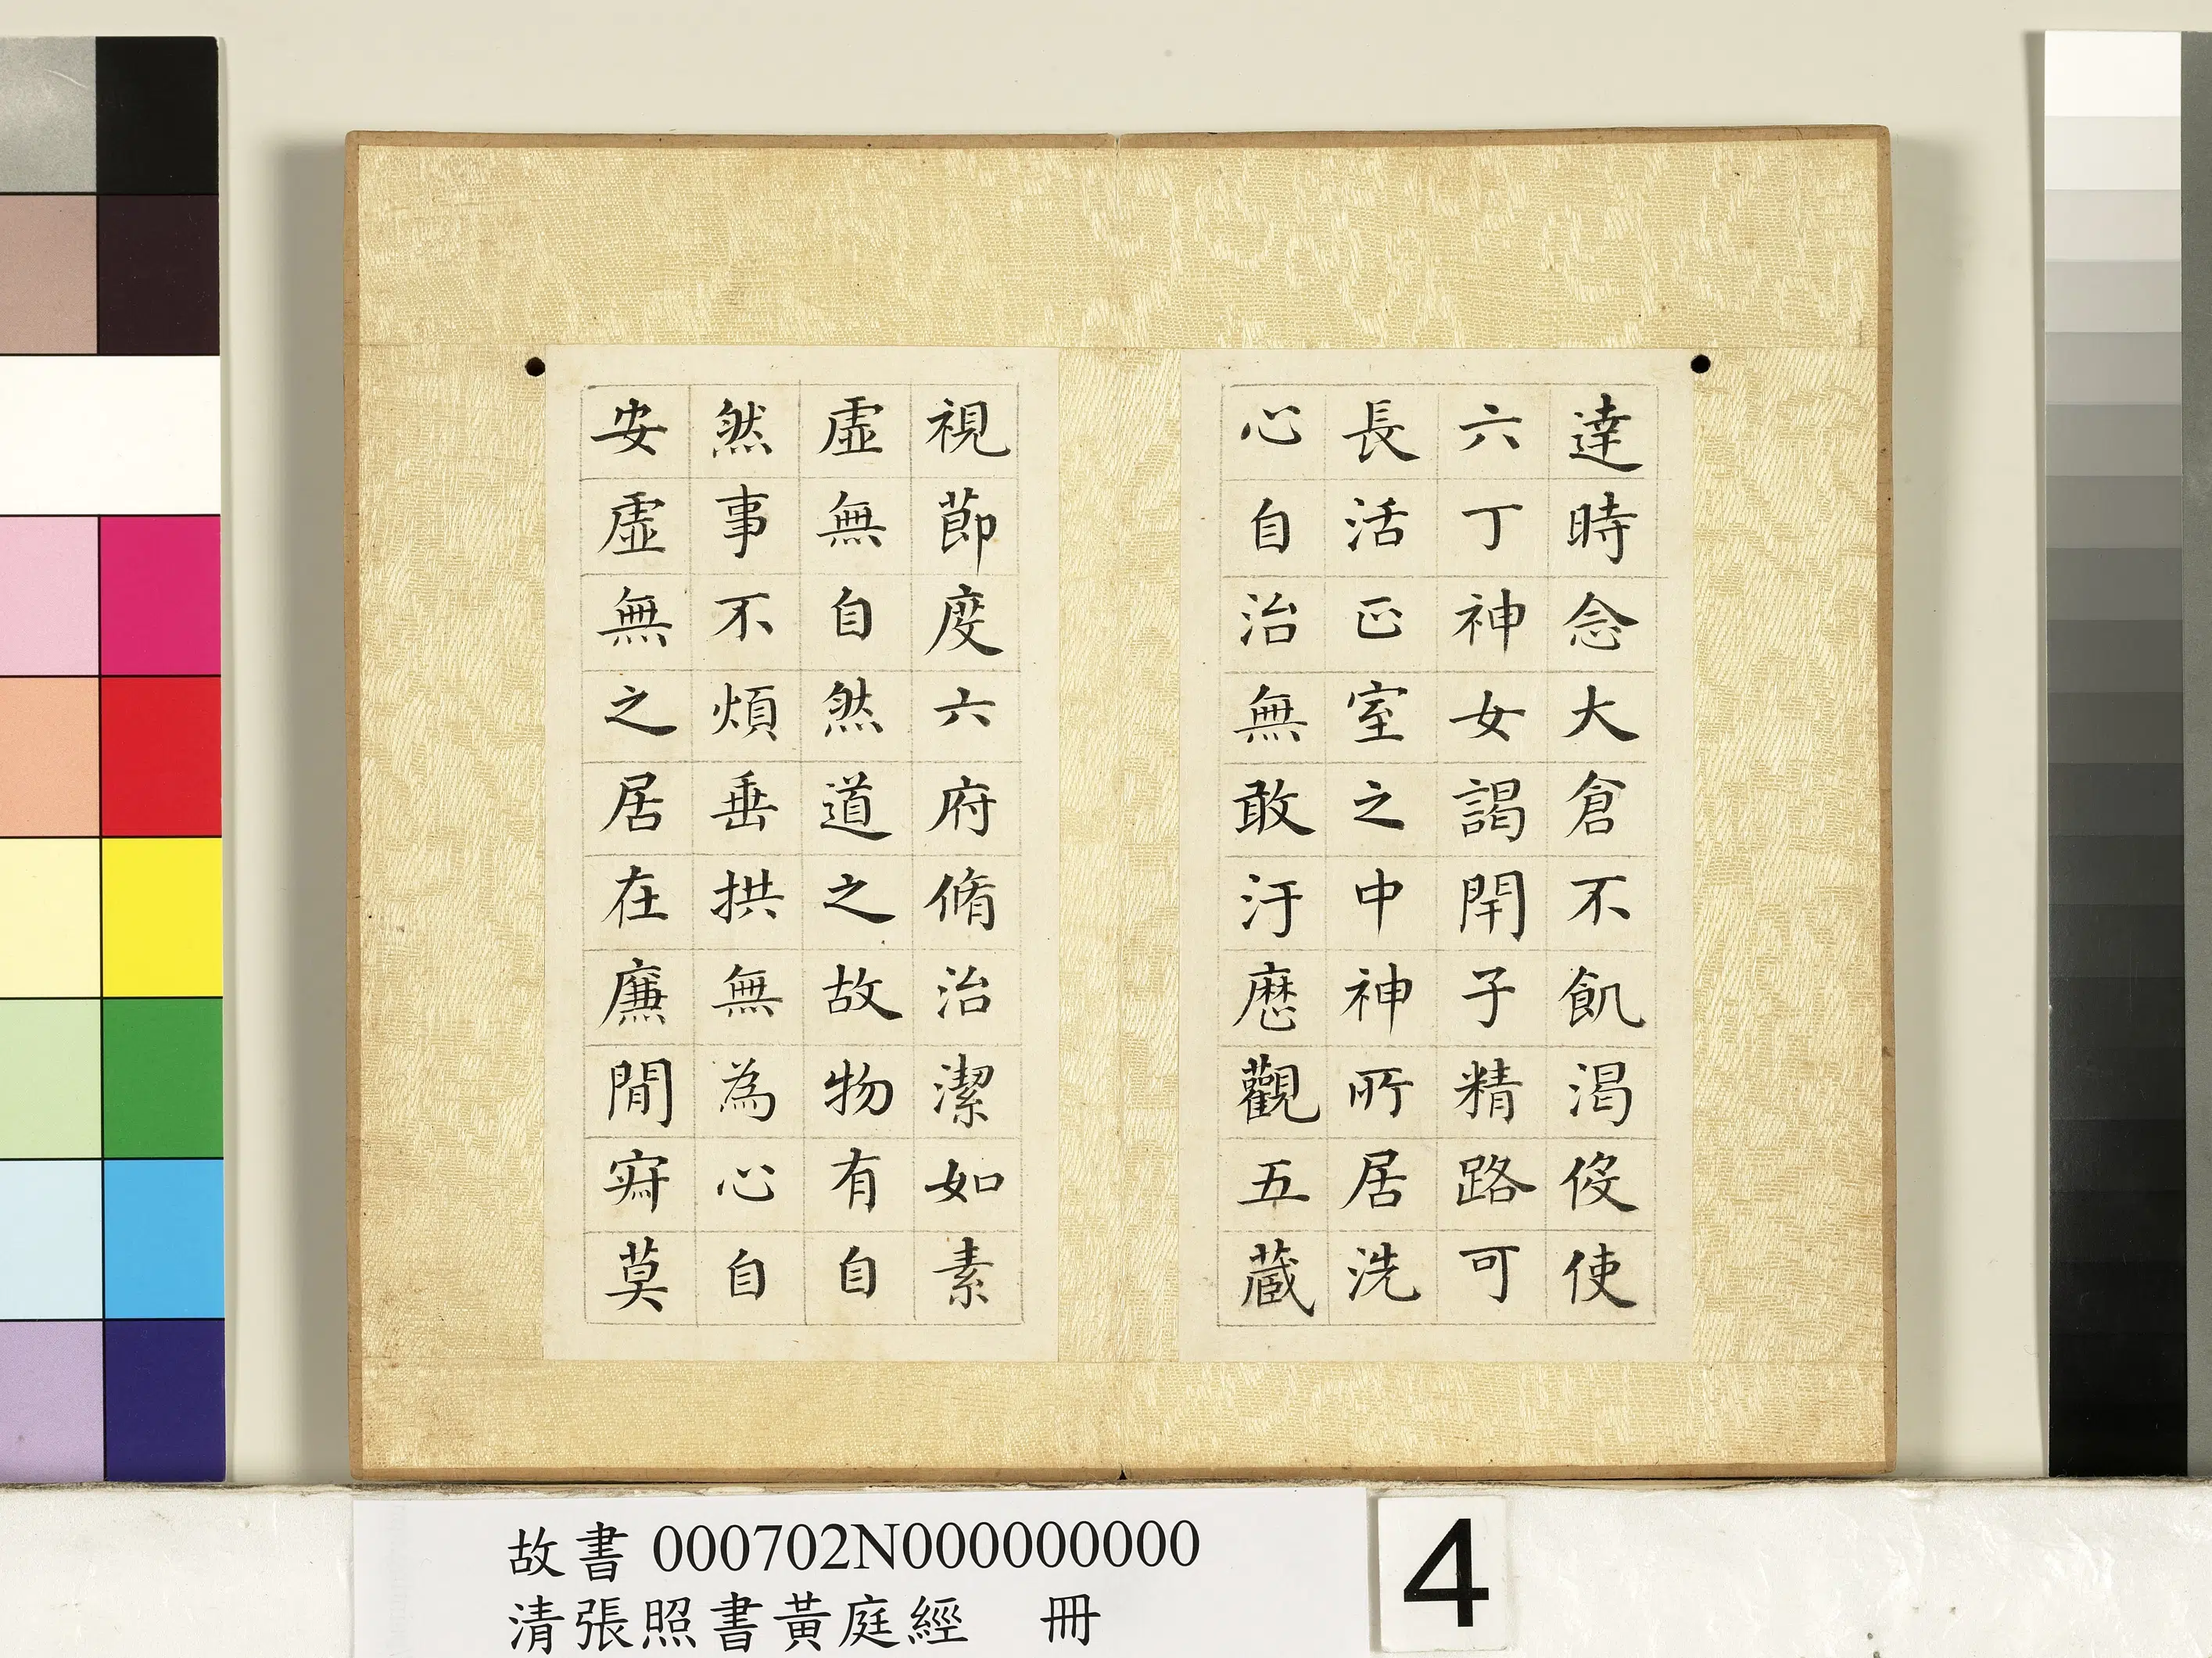 達時念大倉不飢渴役使
六丁神女謁閇子精路可
長活正室之中神所居洗
心自治無敢汙歷觀五藏
視節度六府脩治潔如素
虛無自然道之故物有自
然事不煩垂拱無為心自
安虛無之居在廉間寂莫
故書 000702N000000000
清張照書黃庭經 冊
4